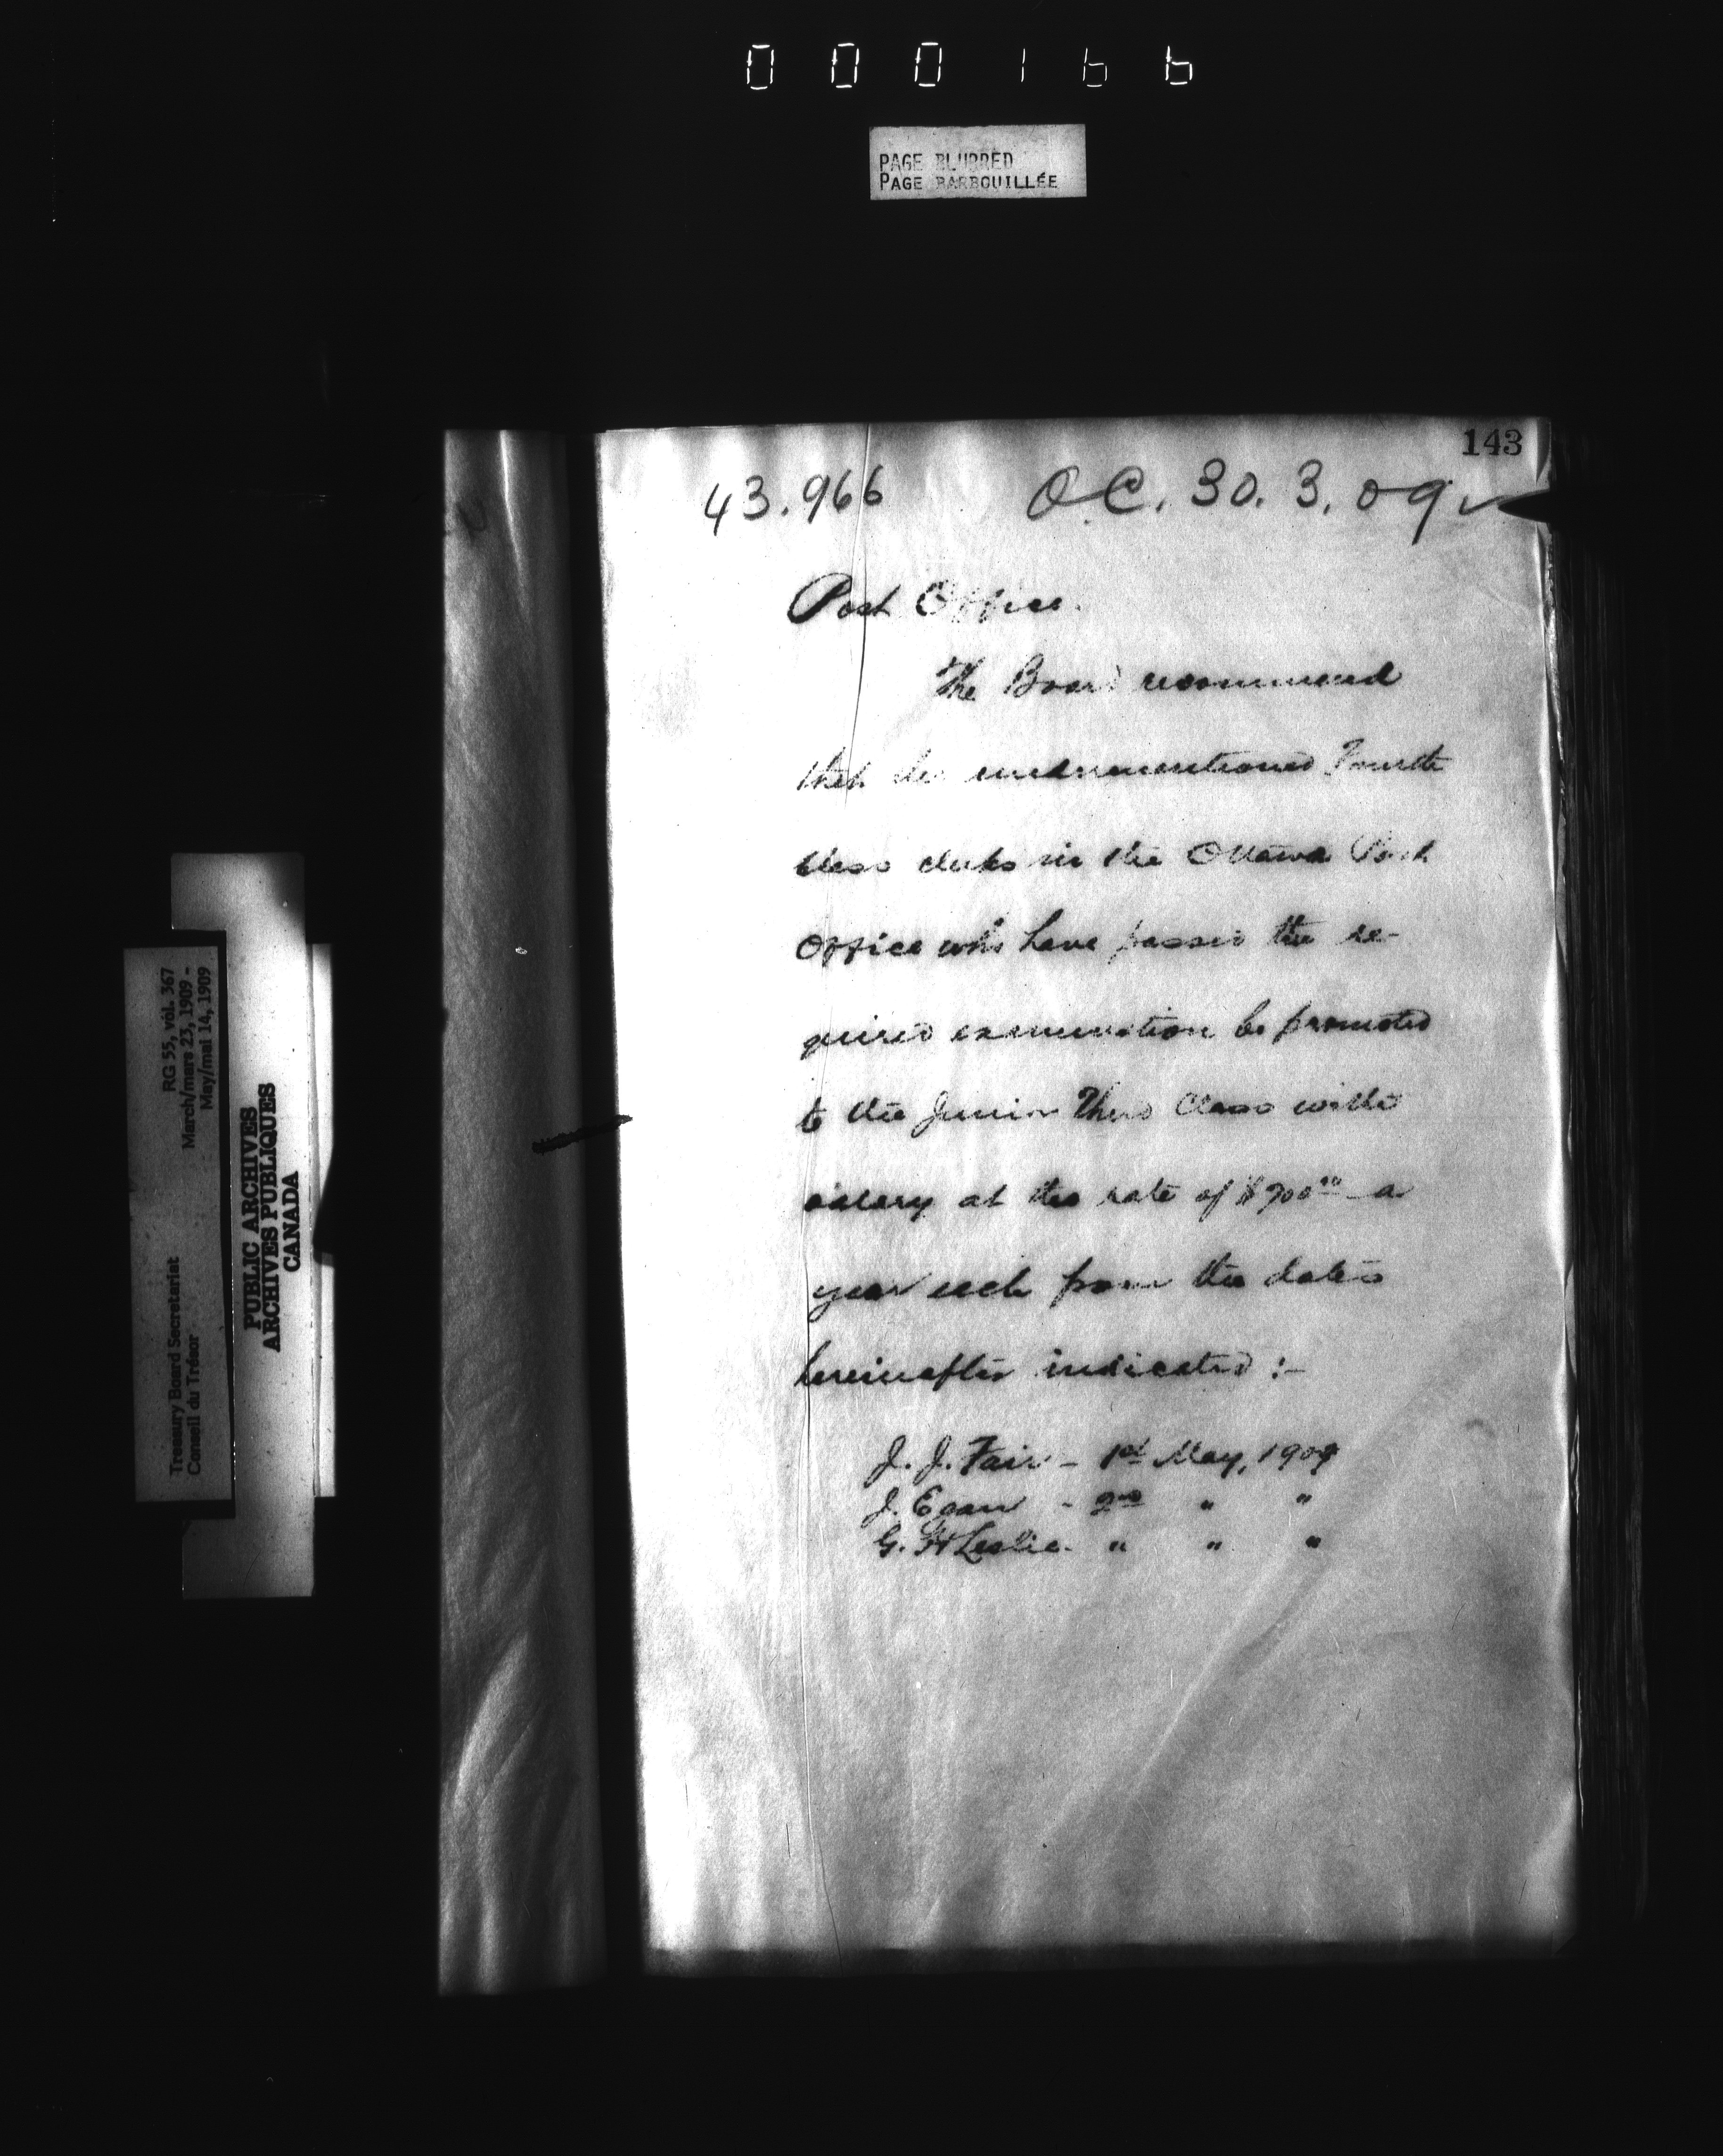 000166
PAGE BLURRED
PAGE BARBOUILLÉE
143
43.966 O.C. 30.3.09
Post Office.
The Board recommend
that the undermentioned Fourth
Class clerks in the Ottawa Post
Office who have passed the re-
quired examination be promoted
to the Junior Third Class with
salary at the rate of $700
year each from the dates
hereinafter indicated :-
J. J. Fair - 1st May, 1909
J. Egan - 2nd " "
G. H Leslie - " " "
RG 55, vol. 367
March/mars 23, 1909 -
May/mai 14, 1909
Treasury Board Secretariat
Conseil du Trésor
PUBLIC ARCHIVES
ARCHIVES PUBLIQUES
CANADA